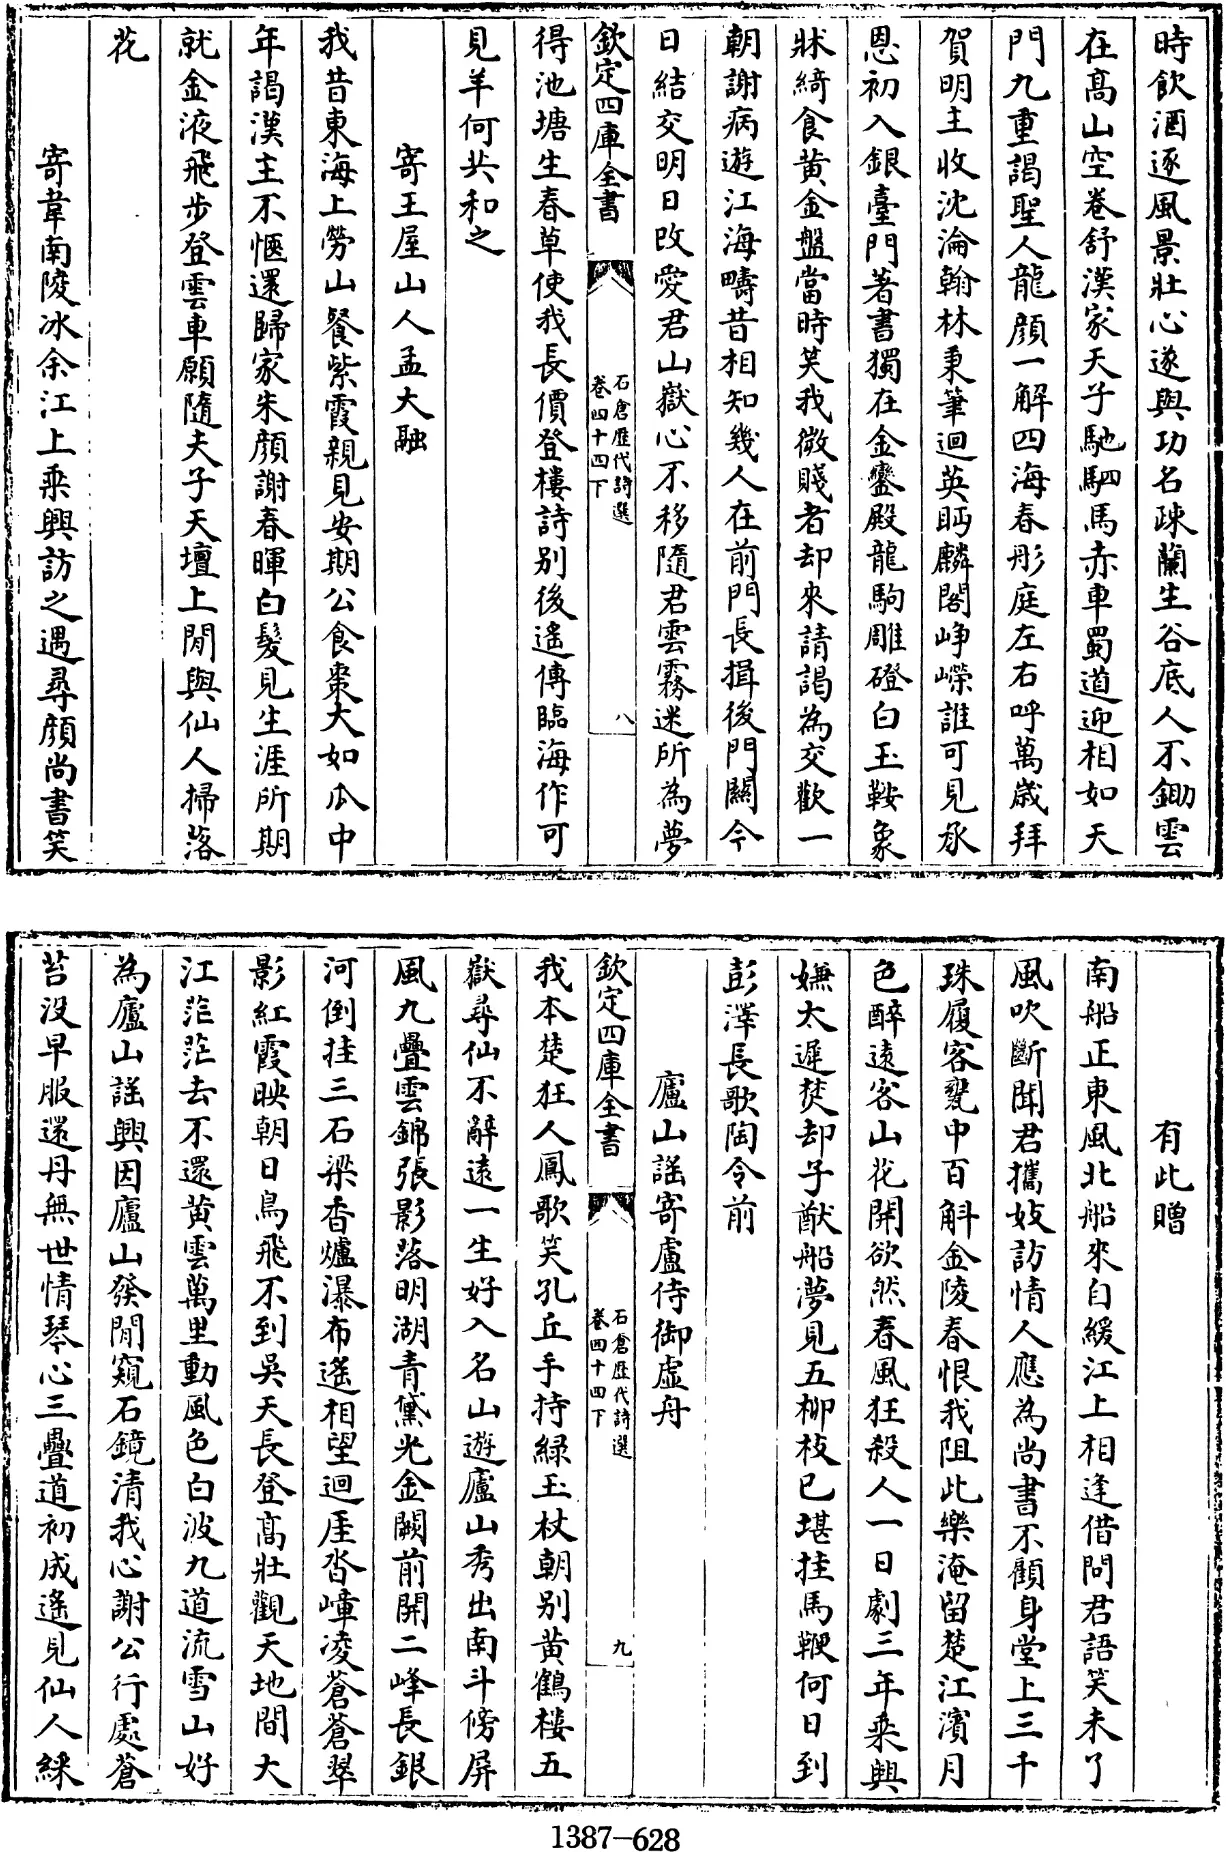 時飲酒逐風景壯心遂與功名疎蘭生谷底人不鋤雲
在高山空卷舒漢家天子馳駟馬赤車蜀道迎相如天
門九重謁聖人龍顔一解四海春彤庭左右呼萬歲拜
賀明主收沈淪翰林秉筆迴英眄麟閣崢嶸誰可見承
恩初入銀臺門著書獨在金鑾殿龍駒雕鐙白玉鞍象
牀綺食黄金盤當時笑我微賤者却來請謁為交歡一
朝謝病遊江海疇昔相知幾人在前門長揖後門關今
日結交明日改愛君山嶽心不移隨君雲霧迷所為夢
欽定四庫全書
石倉歷代詩選
卷四十四下
八
得池塘生春草使我長價登樓詩别後遙傳臨海作可
見羊何共和之
寄王屋山人孟大融
我昔東海上勞山餐紫霞親見安期公食棗大如瓜中
年謁漢主不愜還歸家朱顔謝春暉白髮見生涯所期
就金液飛步登雲車願隨夫子天壇上閒與仙人掃落
花
寄韋南陵冰余江上乘興訪之遇尋顔尚書笑
有此贈
南船正東風北船來自緩江上相逢借問君語笑未了
風吹斷聞君攜妓訪情人應為尚書不顧身堂上三千
珠履客甕中百斛金陵春恨我阻此樂淹留楚江濱月
色醉遠客山花開欲然春風狂殺人一日劇三年乘興
嫌太遲焚却子猷船夢見五柳枝已堪挂馬鞭何日到
彭澤長歌陶令前
廬山謠寄盧侍御虚舟
欽定四庫全書
石倉歷代詩選
卷四十四下
九
我本楚狂人鳳歌笑孔丘手持緑玉杖朝别黄鶴樓五
嶽尋仙不辭遠一生好入名山遊廬山秀出南斗傍屏
風九疊雲錦張影落明湖青黛光金闕前開二峰長銀
河倒挂三石梁香爐瀑布遙相望迴厓沓嶂凌蒼蒼翠
影紅霞映朝日鳥飛不到吳天長登高壯觀天地間大
江茫茫去不還黄雲萬里動風色白波九道流雪山好
為廬山謠興因廬山發閒窺石鏡清我心謝公行處蒼
苔没早服還丹無世情琴心三疊道初成遙見仙人綵
1387-628